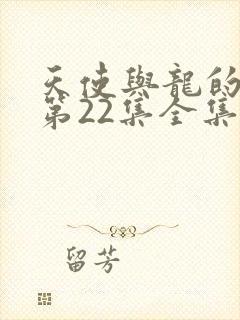 天使與龍的
第22集全集
留芳